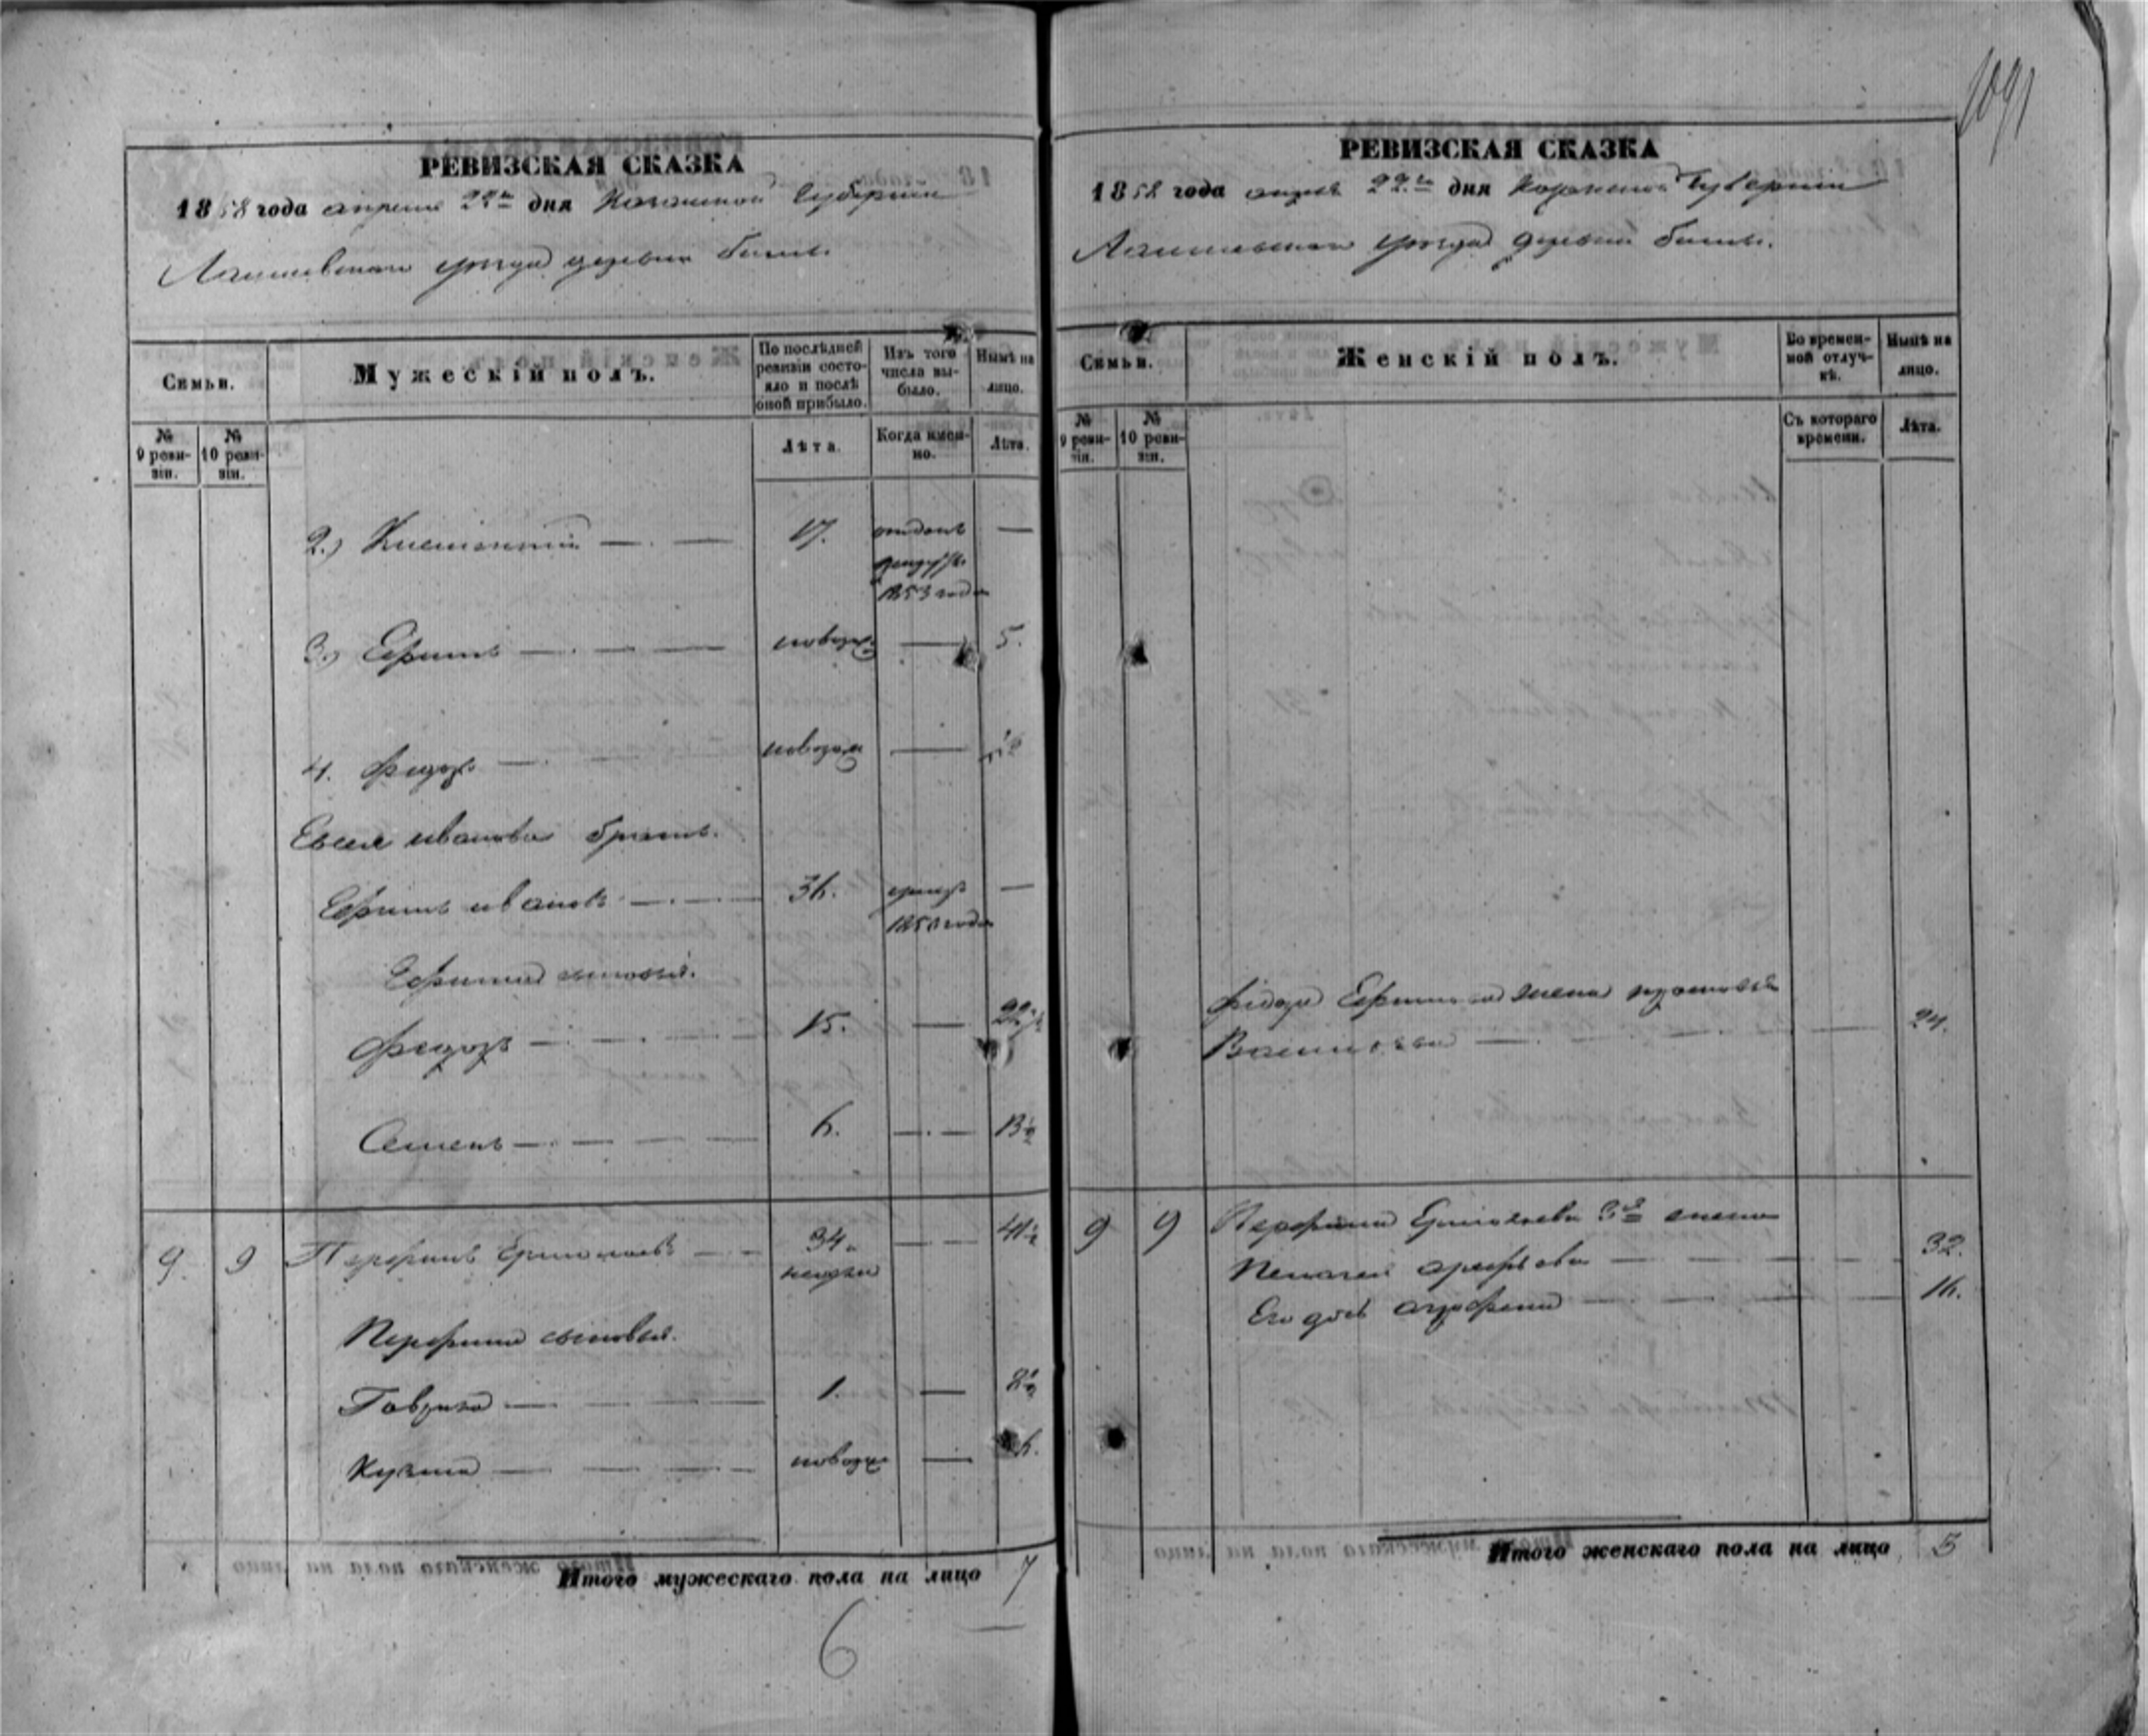 1091
РЕВИЗСКАЯ СКАЗКА
1858 года апреля 22го дня Казанской Губернии
Лаишевского уезда деревни
Семьи.
Мужескій полъ.
По послѣдней ревизіи состояло и послѣ оной прибыло.
Изъ того числа выбыло.
Нынѣ на лицо.
№ 9 ревизіи.
№ 10 ревизіи.
Лѣта.
Когда именно.
Лѣта.
2.) 17. отданъ —
рекруты
1853 года
3.) Ефимъ — новорож — 5.
4. Федоръ — новорож —
Евсея Иванова братъ.
Ефимъ Ивановъ — 36. умеръ —
Ефима сыновья.
Федоръ — 15. — 22½
Семенъ — 6. — 13½
9. 9 Парфенъ Ермолаевъ — 34. — 41½
Парфена сыновья.
Гаврила — 1. — 8½
Кузма — новорож — 6.
Итого мужескаго пола на лицо 7
6
РЕВИЗСКАЯ СКАЗКА
1858 года апреля 22го дня Казанской Губернии
Лаишевского уезда деревни
Семьи.
Женскій полъ.
Во временной отлучкѣ.
Нынѣ на лицо.
№ 9 ревизіи.
№ 10 ревизіи.
Съ котораго времени.
Лѣта.
Федора Ефимова жена
Васильева — 24.
9 9 Парфена Ермолаева 3я жена
Пелагея Арефьева — 32.
Его дочь Аграфена — 16.
Итого женскаго пола на лицо 3